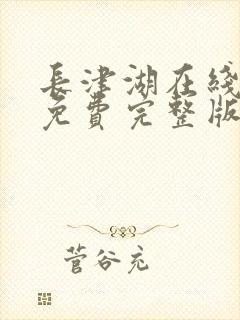 長津湖在綫
免費完整版
菅谷充